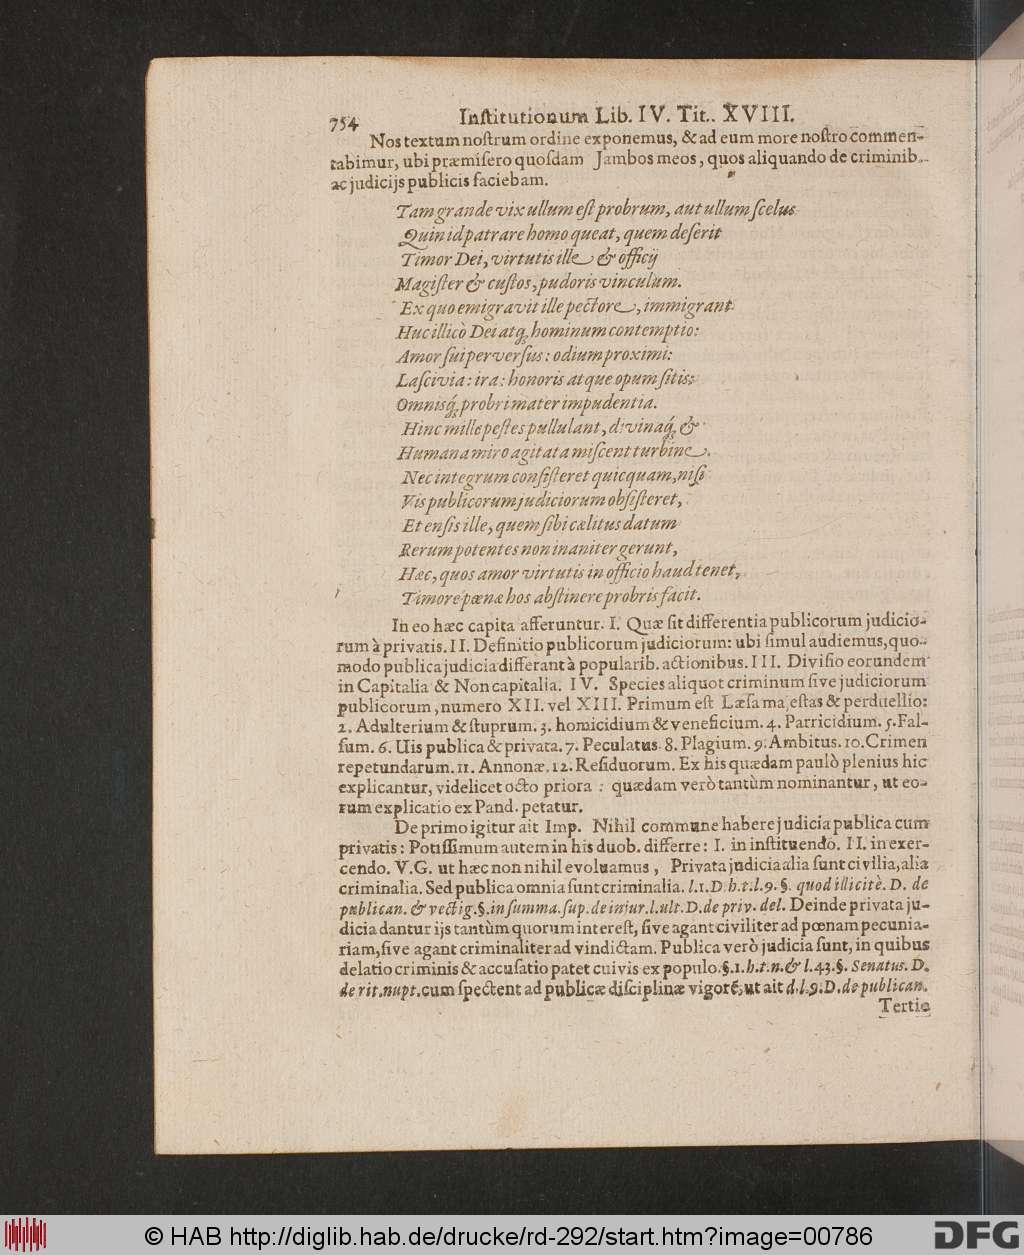 754 Inſtitutionum Lib. IV. Tit.. XVIII.
Nos textum noſtrum ordine exponemus, & ad eum more noſtro commen-
tabimur, ubi præmiſero quoſdam Jambos meos, quos aliquando de criminib.
ac judicijs publicis faciebam.
Tam grande vix ullum eſt probrum, aut ullum ſcelus
Quin id patrare homo queat, quem deſerit
Timor Dei, virtutis ille & officij
Magiſter & cuſtos, pudoris vinculum.
Ex quo emigravit ille pectore, immigrant
Huc illicò Dei atq; hominum contemptio:
Amor ſui perverſus: odium proximi:
Laſcivia: ira: honoris atque opum ſitis:
Omnisq́; probri mater impudentia.
Hinc mille peſtes pullulant, divinaq́; &
Humana miro agitata miſcent turbine.
Nec integrum conſiſteret quicquam, niſi
Vis publicorum judiciorum obſiſteret,
Et enſis ille, quem ſibi cælitus datum
Rerum potentes non inaniter gerunt,
Hæc, quos amor virtutis in officio haud tenet,
Timore pœnæ hos abſtinere probris facit.
In eo hæc capita afferuntur. I. Quæ ſit differentia publicorum judicio-
rum à privatis. II. Definitio publicorum judiciorum: ubi ſimul audiemus, quo-
modo publica judicia differant à popularib. actionibus. III. Diviſio eorundem
in Capitalia & Non capitalia. IV. Species aliquot criminum ſive judiciorum
publicorum, numero XII. vel XIII. Primum eſt Læſa majeſtas & perduellio:
2. Adulterium & ſtuprum. 3. homicidium & veneficium. 4. Parricidium. 5. Fal-
ſum. 6. Uis publica & privata. 7. Peculatus 8. Plagium. 9. Ambitus. 10. Crimen
repetundarum. 11. Annonæ. 12. Reſiduorum. Ex his quædam paulò plenius hic
explicantur, videlicet octo priora : quædam verò tantùm nominantur, ut eo-
rum explicatio ex Pand. petatur.
De primo igitur ait Imp. Nihil commune habere judicia publica cum
privatis: Potiſſimum autem in his duob. differre: I. in inſtituendo. II. in exer-
cendo. V.G. ut hæc non nihil evoluamus, Privata judicia alia ſunt civilia, alia
criminalia. Sed publica omnia ſunt criminalia. l.1. D. h.t. l.9. §. quod illicitè. D. de
publican. & vectig. §. in ſumma. ſup. de injur. l. ult. D. de priv. del. Deinde privata ju-
dicia dantur ijs tantùm quorum intereſt, ſive agant civiliter ad pœnam pecunia-
riam, ſive agant criminaliter ad vindictam. Publica verò judicia ſunt, in quibus
delatio criminis & accuſatio patet cuivis ex populo. §.1. h.t.n. & l.43. §. Senatus. D.
de rit. nupt. cum ſpectent ad publicæ diſciplinæ vigorẽ, ut ait d.l.9. D. de publican.
Tertio
© HAB http://diglib.hab.de/drucke/rd-292/start.htm?image=00786
DFG